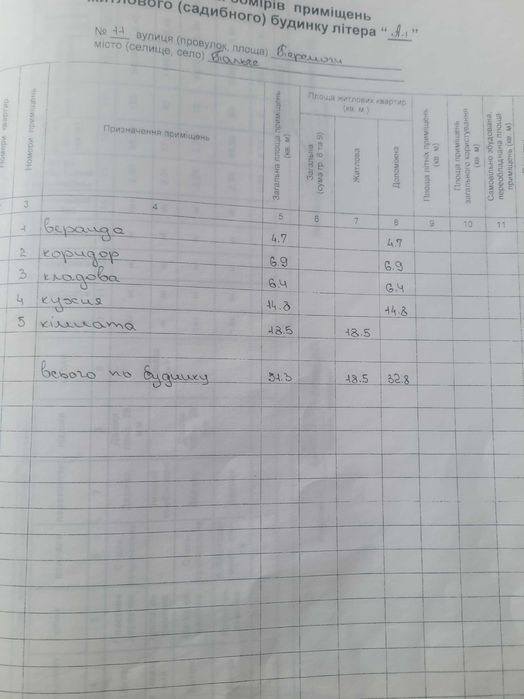 обмірів приміщень
житлового (садибного) будинку літера "А-1"
№ 11 вулиця (провулок, площа)
місто (селище, село)
Номери квартир
Номери приміщень
Призначення приміщень
Загальна площа приміщень (кв. м)
Площа житлових квартир (кв. м.)
Загальна (сума гр. 8 та 9)
Житлова
Допоміжна
Площа літніх приміщень (кв. м)
Площа приміщень загального користування (кв. м)
Самовільно збудована, переобладнана площа приміщень (кв. м)
3 4 5 6 7 8 9 10 11
1 веранда 4.7 4.7
2 коридор 6.9 6.9
3 кладова 6.4 6.4
4 кухня 14.8 14.8
5 кімната 18.5 18.5
всього по будинку 51.3 18.5 32.8